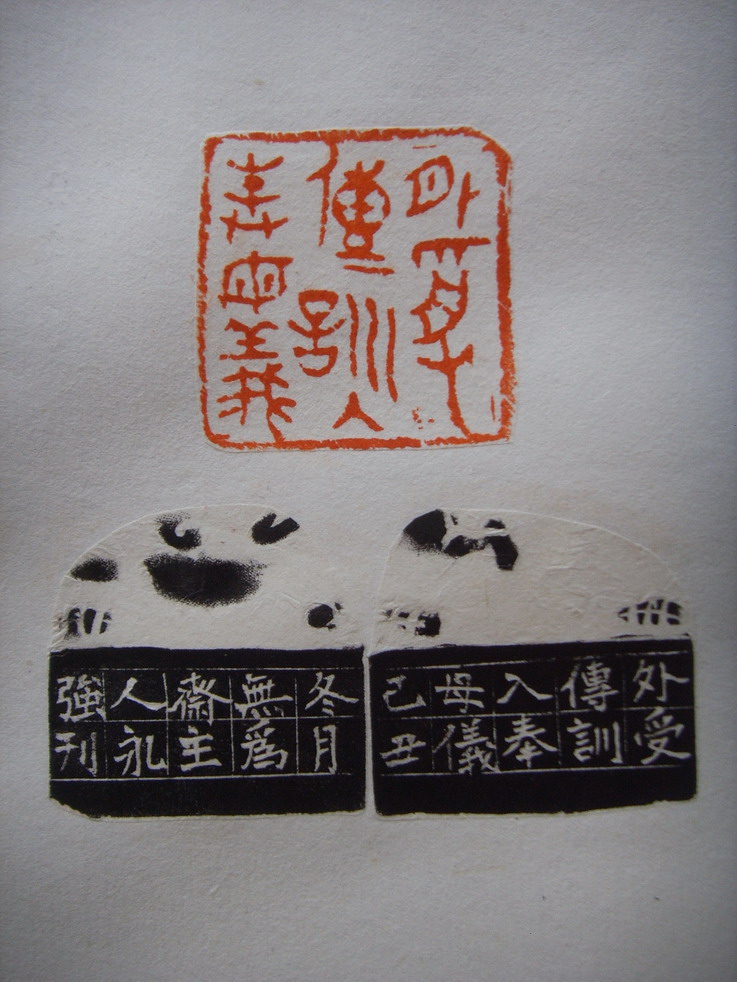 外受
傳訓入
奉母義
外受
傳訓
入奉
母儀
己丑
冬月
無為
齋主
人礼
強刊